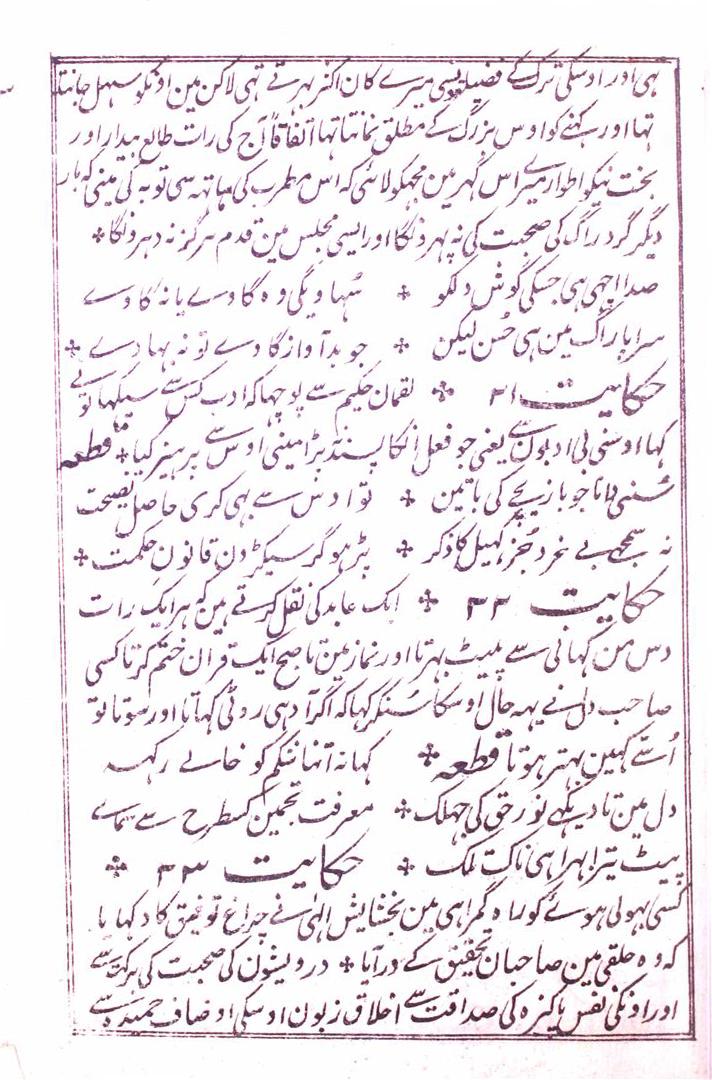 ہی اور اوسکی ترک کے فضیلت میرے کان اکثر بہرتے تہی لاکن مین اونکو سہل جانتا
تہا اور کہنے کو اوس بزرگ کے مطلق نمانتا تہا اتفاقاً آج کی رات طالع بیدار اور
بخت نیکو اطوار میرے اس گہر مین مجہکو لائی کہ اس مطرب کی ہاتہہ سی توبہ کی مینی کہ بار
دیگر گرد راگ کی صحبت کی نہ پہرونگا اور ایسی مجلس مین قدم ہرگز نہ دہرونگا
صدا اچہی ہی جسکی گوش دلکو ٭ سُہاویگی وہ گاوے یا نہ گاوے
سراپا راگ مین ہی حُسن لیکن ٭ جو بدآواز گاوے تو نہ بہاوے ٭
حکایت ٢١ ٭ لقمان حکیم سے پوچہا کہ ادب کس سے سیکہا تونے
کہا اوسنی بی ادبون سے یعنی جو فعل انکا پسند پڑا مینی اوس سے پرہیز کیا ٭ قطعہ
سُنی دانا جو بازیچے کی باتین ٭ تو اوس سے بہی کری حاصل نصیحت
نہ سمجہے بے خرد جُز کہیل کا ذکر ٭ پڑہو گر سیکڑون قانونِ حکمت ٭
حکایت ٢٢ ٭ ایک عابد کی نقل کرتے ہین کہ ہر ایک رات
دس من کہانی سے پیٹ بہرتا اور نماز مین تا صبح ایک قران ختم کرتا کسی
صاحب دل نے یہہ حال اوسکا سُنکر کہا کہ اگر آدہی روٹی کہاتا اور سوتا تو
اُسّے کہین بہتر ہوتا قطعہ ٭ کہا نہ اتنا شکم کو خالے رکہہ
دل مین تا دیکہے نور حق کی جہلک ٭ معرفت تجہمین کسطرح سے سماے
پیٹ تیرا بہرا ہی ناک تلک ٭ حکایت ٢٣ ٭
کسی بہولی ہوئے کو راہ گمراہی مین بخشایش الہٰی نے چراغ توفیق کا دکہایا
کہ وہ حلقی مین صاحبان تحقیق کے در آیا ٭ درویشون کی صحبت کی برکت سے
اور اونکی نفس پاکیزہ کی صداقت سے اخلاق زبون اوسکی اوصاف حمیدہ سے